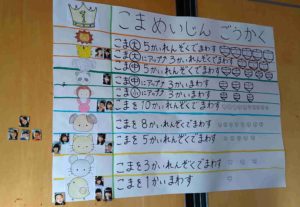 こまめいじん ごうかく
1
こま大5かいれんぞくでまわす
こま大にアップク3かいれんぞくでまわす
こま中5かいれんぞくでまわす
こま中にアップク3かいまわす
こま小にアップク3かいまわす
こまを10かいれんぞくでまわす
こまを8かいれんぞくでまわす
こまを5かいれんぞくでまわす
こまを3かいれんぞくでまわす
こまを1かいまわす